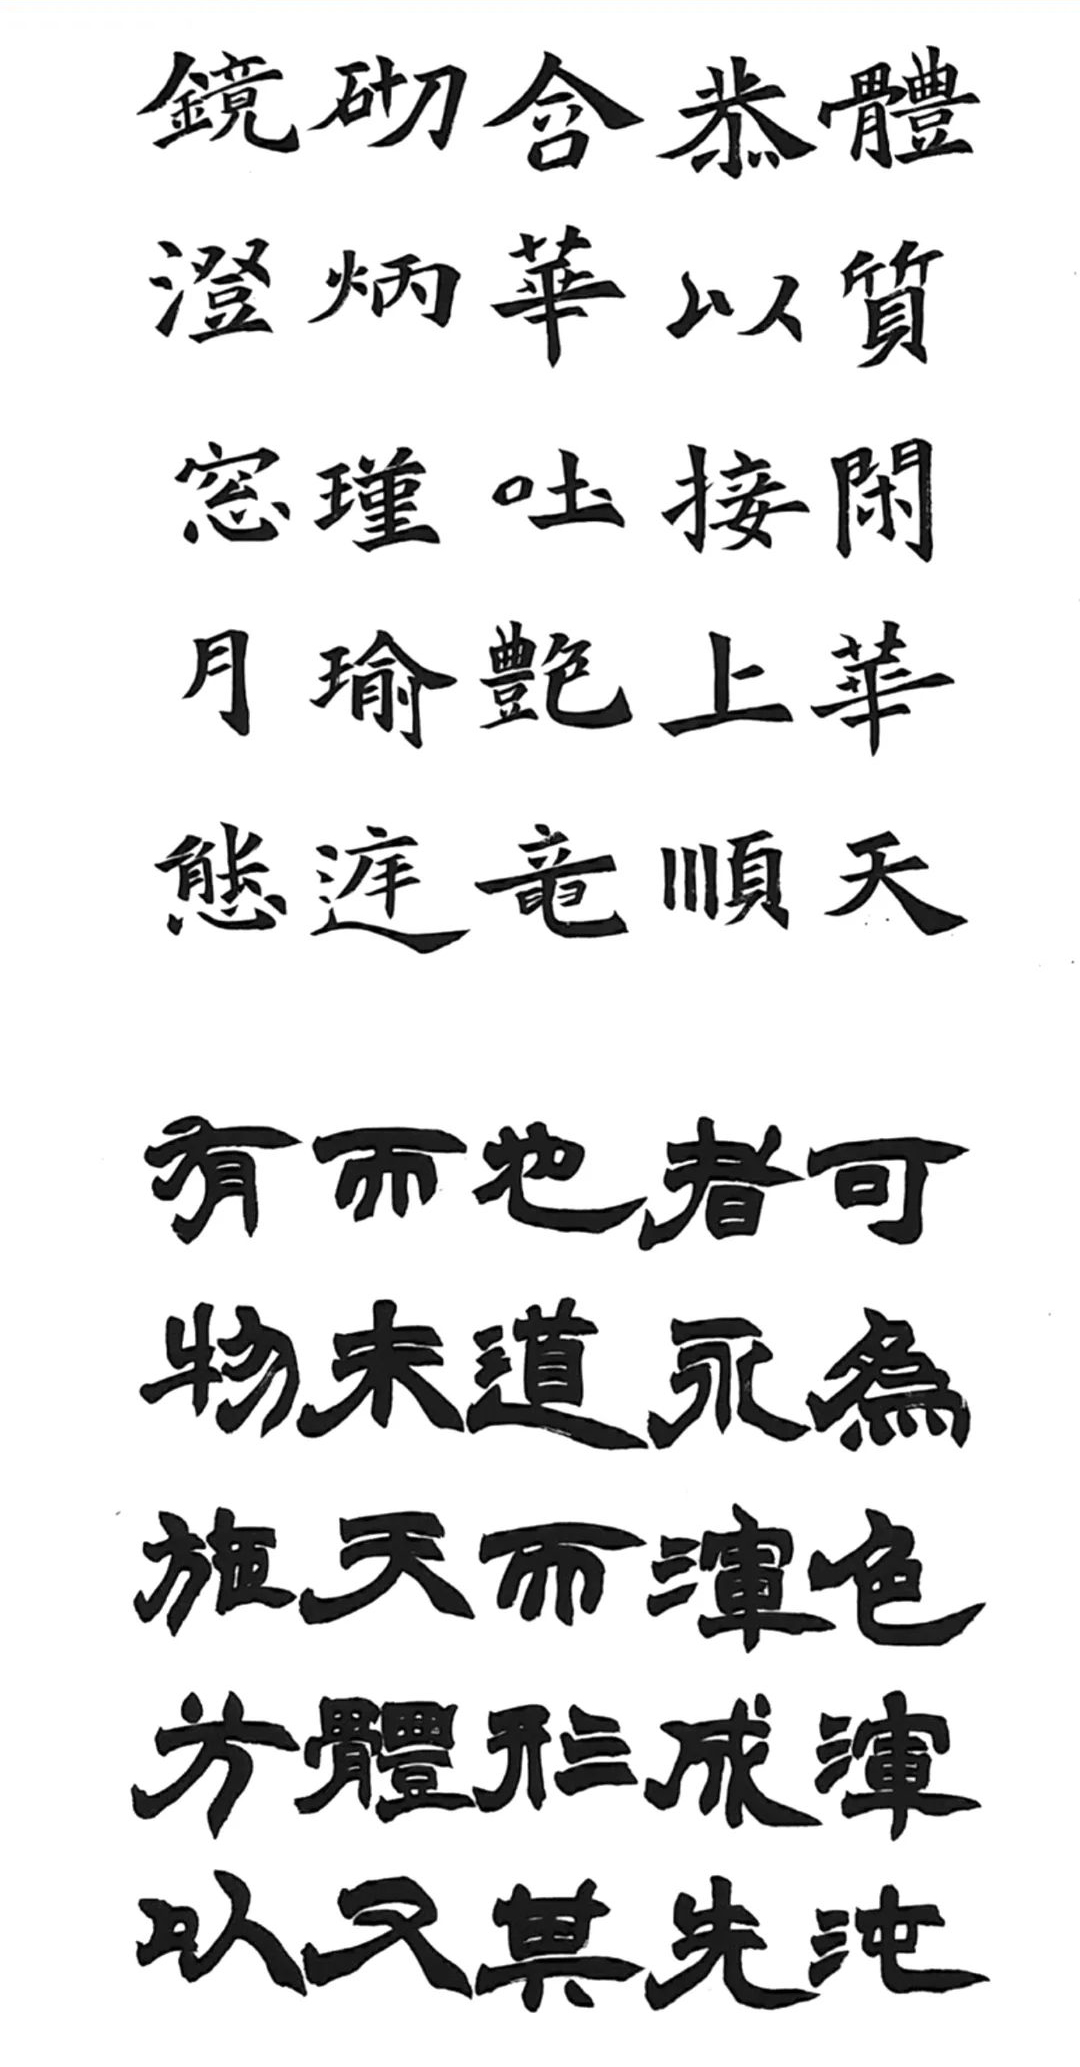 體質閑華天
恭以接上順
含華吐艶竜
砌炳瑾瑜遅
鏡澄窓月態
可為色渾沌
者永渾成先
也道而形其
而未天體又
有物施方以